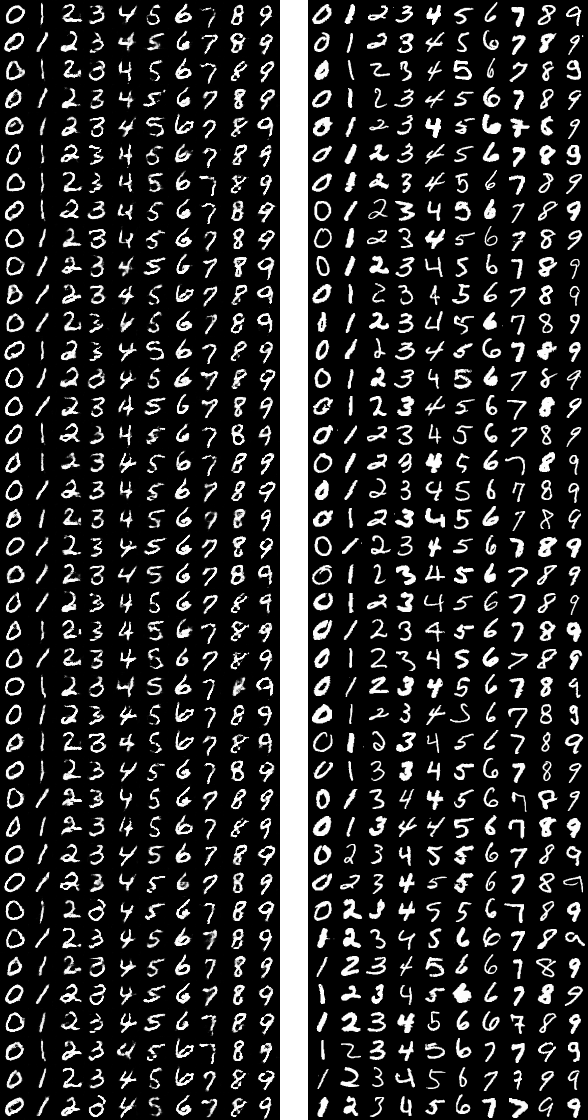 0 1 2 3 4 5 6 7 8 9 0 1 2 3 4 5 6 7 8 9
0 1 2 3 4 5 6 7 8 9 0 1 2 3 4 5 6 7 8 9
0 1 2 3 4 5 6 7 8 9 0 1 2 3 4 5 6 7 8 9
0 1 2 3 4 5 6 7 8 9 0 1 2 3 4 5 6 7 8 9
0 1 2 3 4 5 6 7 8 9 0 1 2 3 4 5 6 7 8 9
0 1 2 3 4 5 6 7 8 9 0 1 2 3 4 5 6 7 8 9
0 1 2 3 4 5 6 7 8 9 0 1 2 3 4 5 6 7 8 9
0 1 2 3 4 5 6 7 8 9 0 1 2 3 4 5 6 7 8 9
0 1 2 3 4 5 6 7 8 9 0 1 2 3 4 5 6 7 8 9
0 1 2 3 4 5 6 7 8 9 0 1 2 3 4 5 6 7 8 9
0 1 2 3 4 5 6 7 8 9 0 1 2 3 4 5 6 7 8 9
0 1 2 3 4 5 6 7 8 9 1 1 2 3 4 5 6 7 8 9
0 1 2 3 4 5 6 7 8 9 0 1 2 3 4 5 6 7 8 9
0 1 2 3 4 5 6 7 8 9 0 1 2 3 4 5 6 7 8 9
0 1 2 3 4 5 6 7 8 9 0 1 2 3 4 5 6 7 8 9
0 1 2 3 4 5 6 7 8 9 0 1 2 3 4 5 6 7 8 9
0 1 2 3 4 5 6 7 8 9 0 1 2 3 4 5 6 7 8 9
0 1 2 3 4 5 6 7 8 9 0 1 2 3 4 5 6 7 8 9
0 1 2 3 4 5 6 7 8 9 0 1 2 3 4 5 6 7 8 9
0 1 2 3 4 5 6 7 8 9 0 1 2 3 4 5 6 7 8 9
0 1 2 3 4 5 6 7 8 9 0 1 2 3 4 5 6 7 8 9
0 1 2 3 4 5 6 7 8 9 0 1 2 3 4 5 6 7 8 9
0 1 2 3 4 5 6 7 8 9 0 1 2 3 4 5 6 7 8 9
0 1 2 3 4 5 6 7 8 9 0 1 2 3 4 5 6 7 8 9
0 1 2 3 4 5 6 7 8 9 0 1 2 3 4 5 6 7 8 9
0 1 2 3 4 5 6 7 8 9 0 1 2 3 4 5 6 7 8 9
0 1 2 3 4 5 6 7 8 9 0 1 2 3 4 5 6 7 8 9
0 1 2 3 4 5 6 7 8 9 0 1 3 3 4 5 6 7 8 9
0 1 2 3 4 5 6 7 8 9 0 1 3 4 4 5 6 7 8 9
0 1 2 3 4 5 6 7 8 9 0 1 3 4 4 5 6 7 8 9
0 1 2 3 4 5 6 7 8 9 0 2 3 4 5 5 6 7 8 9
0 1 2 3 4 5 6 7 8 9 0 2 3 4 5 5 6 7 8 9
0 1 2 3 4 5 6 7 8 9 0 2 3 4 5 5 6 7 8 9
0 1 2 3 4 5 6 7 8 9 1 2 3 4 5 6 6 7 8 9
0 1 2 3 4 5 6 7 8 9 1 2 3 4 5 6 6 7 8 9
0 1 2 3 4 5 6 7 8 9 1 2 3 4 5 6 6 7 8 9
0 1 2 3 4 5 6 7 8 9 1 2 3 4 5 6 6 7 8 9
0 1 2 3 4 5 6 7 8 9 1 2 3 4 5 6 7 7 9 9
0 1 2 3 4 5 6 7 8 9 1 2 3 4 5 6 7 7 9 9
0 1 2 3 4 5 6 7 8 9 1 2 3 4 5 6 7 7 9 9